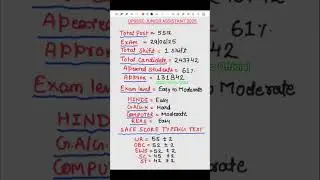 UPSSSC JUNIOR ASSISTANT 2025
Total Post = 5512
Exam = 29/06/25
Total Shift = 1 shift
Total Candidate = 243742
Apeared students = 61%
Approx = 131842
Exam level = Easy to Moderate
HINDI = Easy
G.A/G.K = Hard
COMPUTER = Moderate
REAS = Easy
SAFE SCORE TYPING TEST
UR = 55 ± 2
OBC = 52 ± 2
EWS = 52 ± 2
SC = 45 ± 2
ST = 42 ± 2